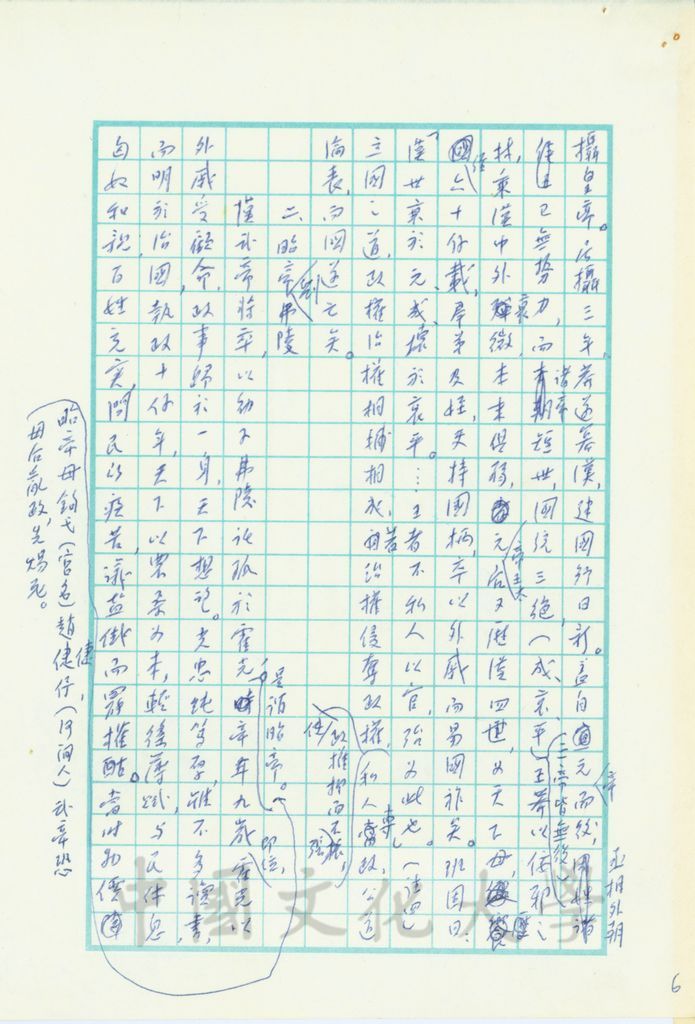 攝皇帝。居攝三年，莽遂篡漢，建國行日新。蓋自元帝而後，國姓諸
侯王已無勢力，而諸帝短世，國統三絕（成、哀、平三帝皆無後），王莽以佞邪之
材，乘漢中外衰微，本末俱弱，元后歷漢四世，為天下母，饗
國六十餘載，群弟及姪，更持國柄，卒以外戚而易國祚矣。班固曰：
「漢世衰於元、成，壞於哀、平。……王者不私人以官，殆為此也」。
立國之道，政權治權相輔相成，若治權侵奪政權，私人專政，公道
淪喪，而國遂亡矣。
政權抑而不振，
二、昭帝劉弗陵
漢武帝將卒，以幼子弗陵託孤於霍光，是謂昭帝。帝年九歲即位，霍光以
外戚受顧命，政事歸於一身，天下想望。光忠純篤厚，雖不多讀書，
而明於治國，執政十餘年，天下以農桑為本，輕徭薄賦，與民休息，
匈奴和親，百姓充實，問民以疾苦，議鹽鐵而罷榷酤。當時
（昭帝母鉤弋（宮名）趙倢伃（河間人）武帝恐
母后亂政，先賜死。
丞相外朝
中國文化大學
6